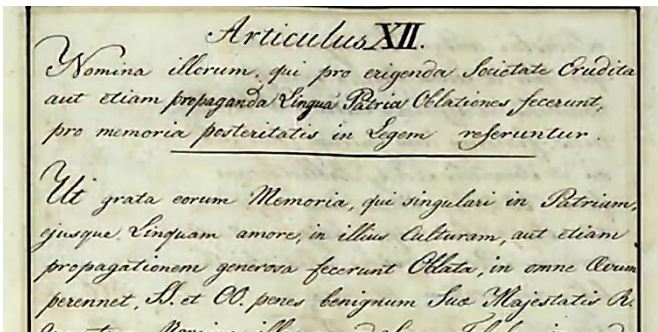 Articulus XII.
Nomina illorum, qui pro erigenda Societate Erudita
aut etiam propaganda Lingua Patria Oblationes fecerunt,
pro memoria posteritatis in Legem referuntur.
Ut grata eorum Memoria, qui singulari in Patriam,
ejusque Linguam amore, in illius Culturam, aut etiam
propagationem generosa fecerunt Oblata, in omne Ævum
perennet, SS. et OO. penes benignum Suæ Majestatis R.